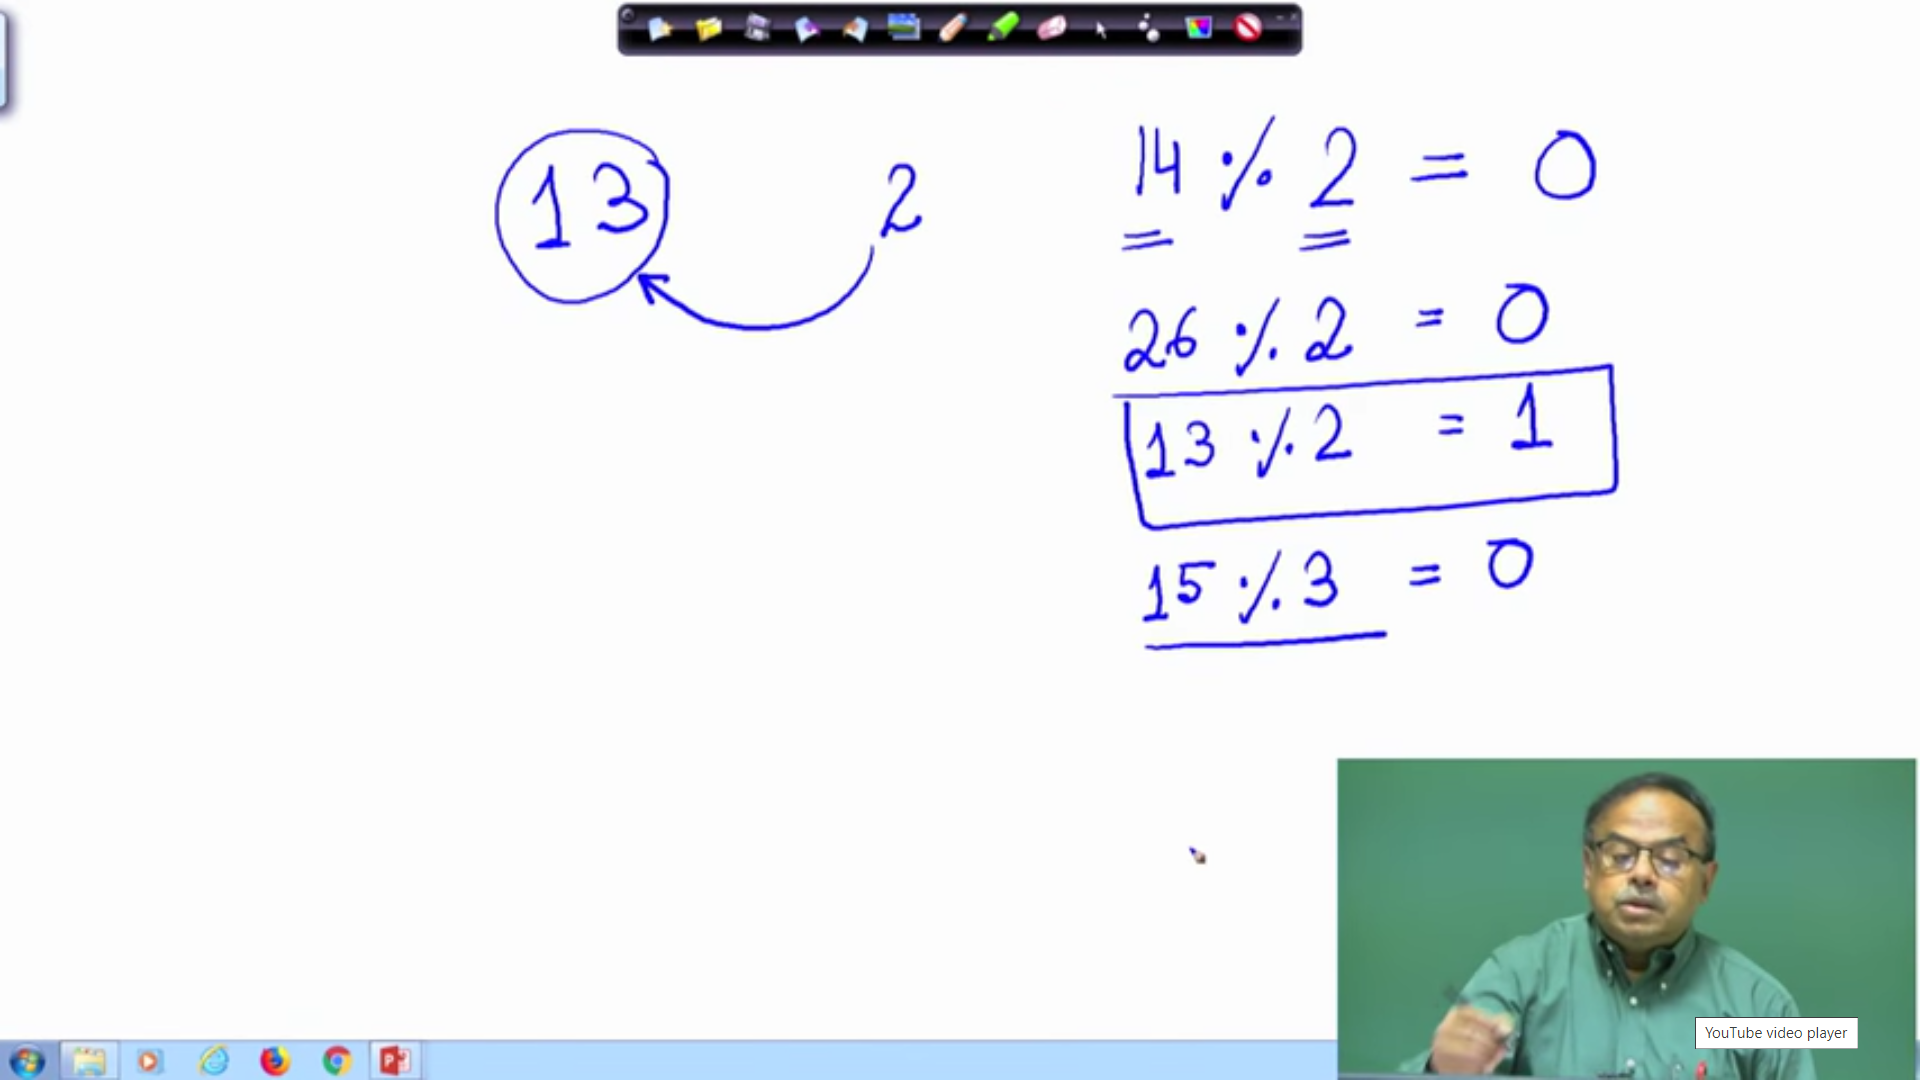 13 2
14 % 2 = 0
26 % 2 = 0
13 % 2 = 1
15 % 3 = 0
YouTube video player